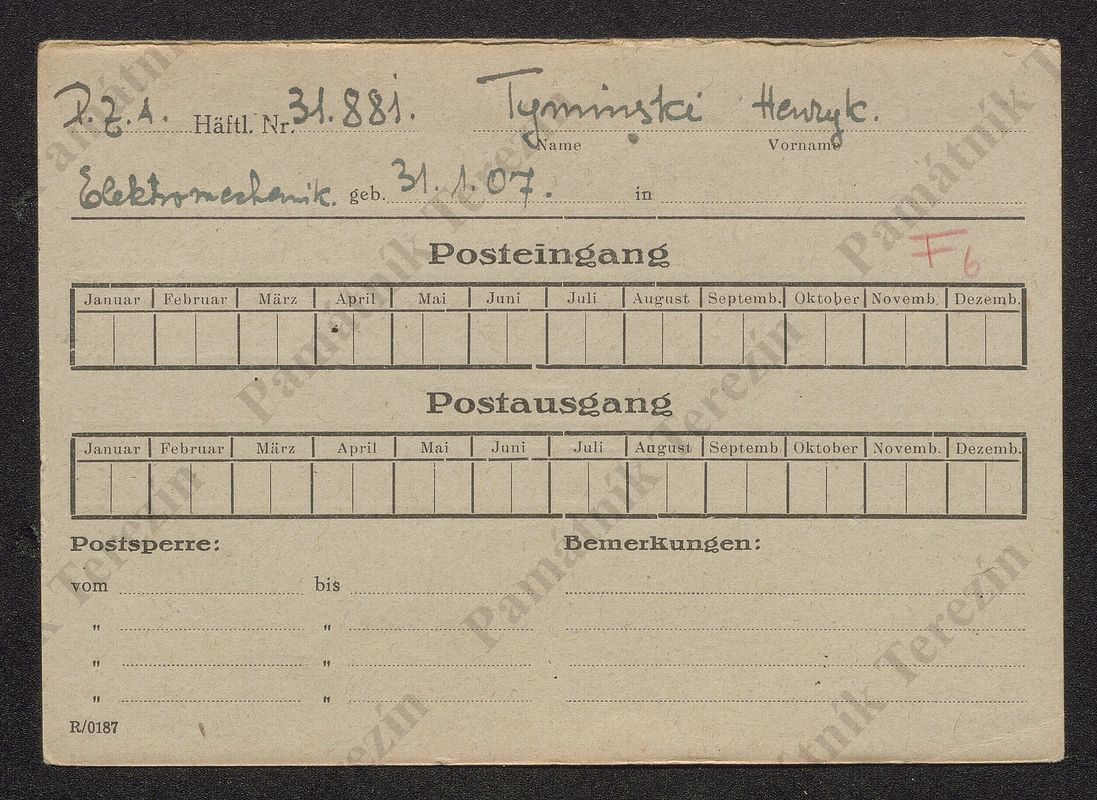 P.Z.A. Häftl. Nr. 31.881. Tyminski Henryk.
Name Vorname
Elektromechanik. geb. 31.1.07. in
Posteingang F6
Januar Februar März April Mai Juni Juli August Septemb. Oktober Novemb. Dezemb.
Postausgang
Januar Februar März April Mai Juni Juli August Septemb. Oktober Novemb. Dezemb.
Postsperre: Bemerkungen:
vom bis
" "
" "
" "
R/0187
Památník Terezín